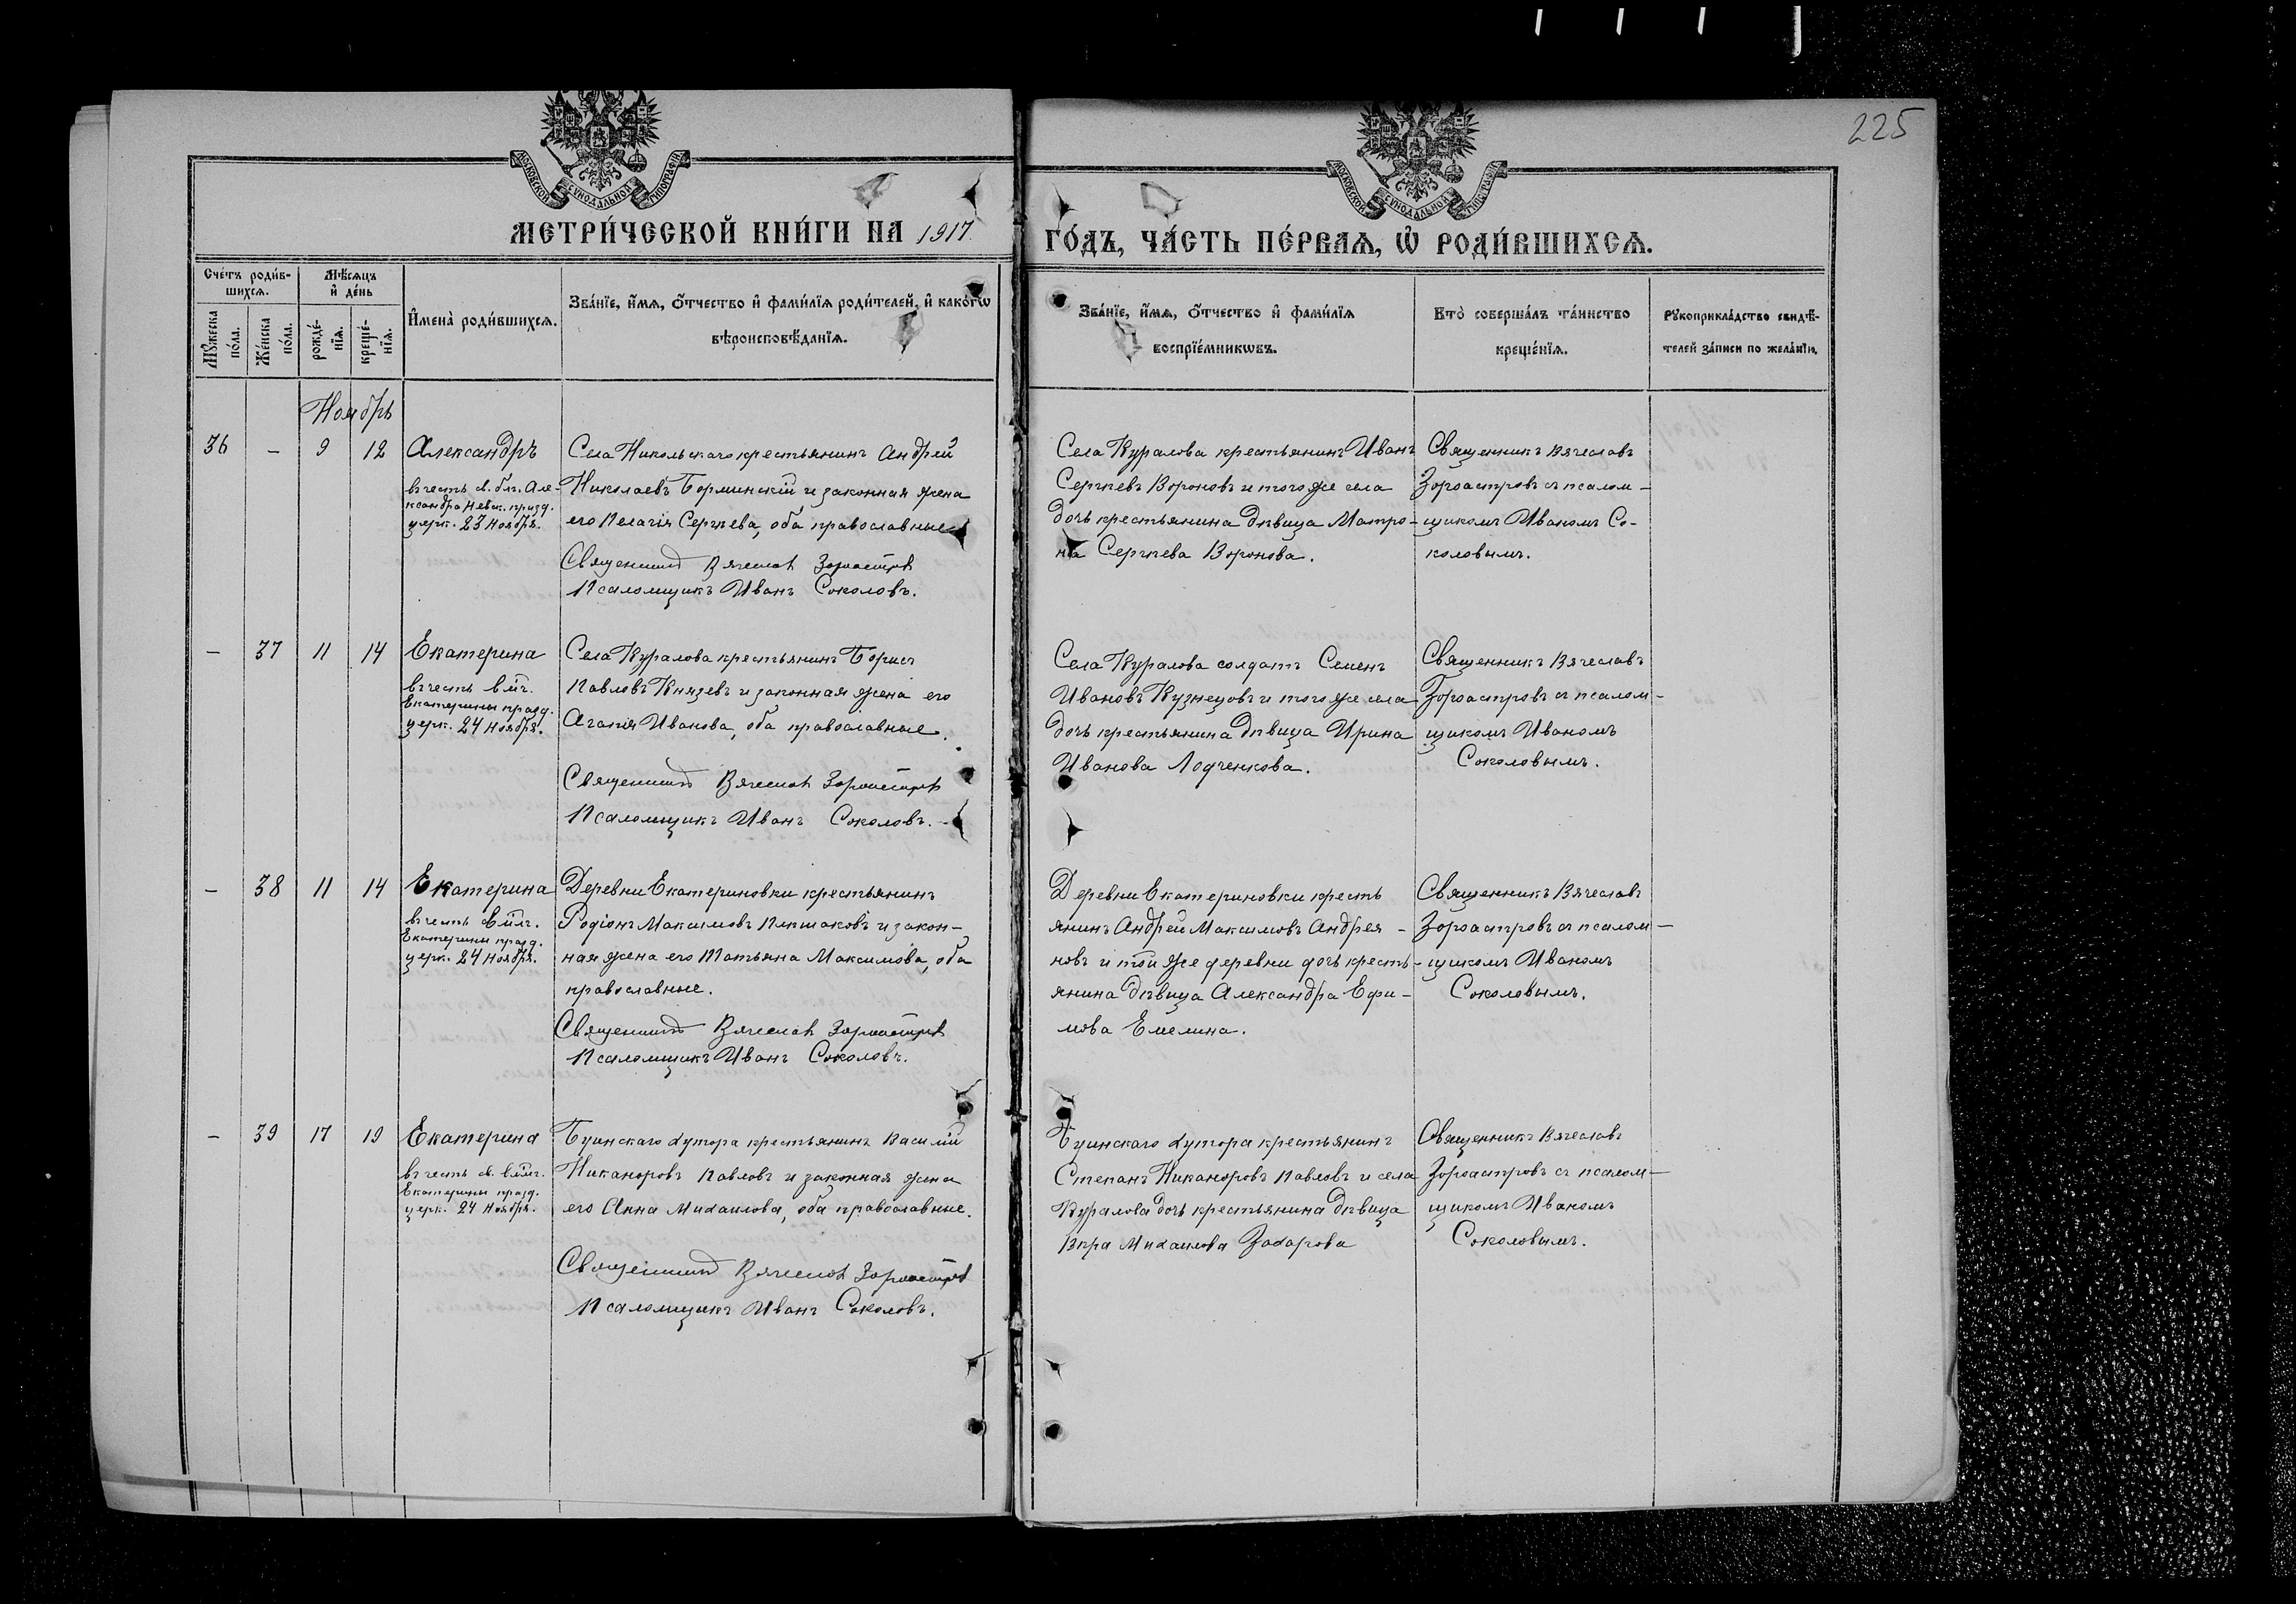 225
МОСКОВСКОЙ СѴНОДАЛЬНОЙ ТИПОГРАФІИ
МОСКОВСКОЙ СѴНОДАЛЬНОЙ ТИПОГРАФІИ
МЕТРИ́ЧЕСКОЙ КНИ́ГИ НА 1917
ГО́ДЪ, ЧА́СТЬ ПЕ́РВАѦ, Ѡ҆ РОДИ́ВШИХСѦ.
Сче́тъ роди́в-
шихсѧ.
Мѣ́сѧцъ
и҆ де́нь
Мꙋ́жеска
по́ла.
Же́нска
по́ла.
рожде́-
нїѧ.
креще́-
нїѧ.
И҆мена̀ роди́вшихсѧ.
Зва́нїе, и҆́мѧ, ѻ҆́тчество и҆ фами́лїѧ роди́телей, и҆ како́гѡ
вѣроисповѣ́данїѧ.
Зва́нїе, и҆́мѧ, ѻ҆́тчество и҆ фами́лїѧ
воспрїе́мникѡвъ.
Кто̀ соверша́лъ та́инство
креще́нїѧ.
Рꙋкоприкла́дство свидѣ́-
телей за́писи по жела́нїю.
Ноябрь
36 – 9 12 Александръ
въ честь св. бл. Але-
ксандра Невск. празд.
церк. 23 Ноября.
Села Никольскаго крестьянинъ Андрей
Николаевъ Борминскій и законная жена
его Пелагія Сергѣева, оба православные
Священникъ Вячеславъ Зороастровъ
Псаломщикъ Иванъ Соколовъ.
Села Куралова крестьянинъ Иванъ
Сергѣевъ Вороновъ и того же села
дочь крестьянина дѣвица Матро-
на Сергѣева Воронова.
Священникъ Вячеславъ
Зороастровъ съ псалом-
щикомъ Иваномъ Со-
коловымъ.
– 37 11 14 Екатерина
въ честь вмч.
Екатерины празд.
церк. 24 Ноября.
Села Куралова крестьянинъ Борисъ
Павловъ Князевъ и законная жена его
Агапія Иванова, оба православные.
Священникъ Вячеславъ Зороастровъ
Псаломщикъ Иванъ Соколовъ.
Села Куралова солдатъ Семенъ
Ивановъ Кузнецовъ и того же села
дочь крестьянина дѣвица Ирина
Иванова Лодченкова.
Священникъ Вячеславъ
Зороастровъ съ псалом-
щикомъ Иваномъ
Соколовымъ.
– 38 11 14 Екатерина
въ честь Вмч.
Екатерины празд.
церк. 24 Ноября.
Деревни Екатериновки крестьянинъ
Родіонъ Максимовъ Пикшаковъ и закон-
ная жена его Татьяна Максимова, оба
православные.
Священникъ Вячеславъ Зороастровъ
Псаломщикъ Иванъ Соколовъ.
Деревни Екатериновки кресть
янинъ Андрей Максимовъ Андрея-
новъ и той же деревни дочь кресть-
янина дѣвица Александра Ефи-
мова Емелина.
Священникъ Вячеславъ
Зороастровъ съ псалом-
щикомъ Иваномъ
Соколовымъ.
– 39 17 19 Екатерина
въ честь св. вмч.
Екатерины празд.
церк. 24 Ноября.
Буинскаго хутора крестьянинъ Василій
Никаноровъ Павловъ и законная жена
его Анна Михаилова, оба православные.
Священникъ Вячеславъ Зороастровъ
Псаломщикъ Иванъ Соколовъ.
Буинскаго хутора крестьянинъ
Степанъ Никаноровъ Павловъ и села
Куралова дочь крестьянина дѣвица
Вѣра Михаилова Захарова
Священникъ Вячеславъ
Зороастровъ съ псалом-
щикомъ Иваномъ
Соколовымъ.